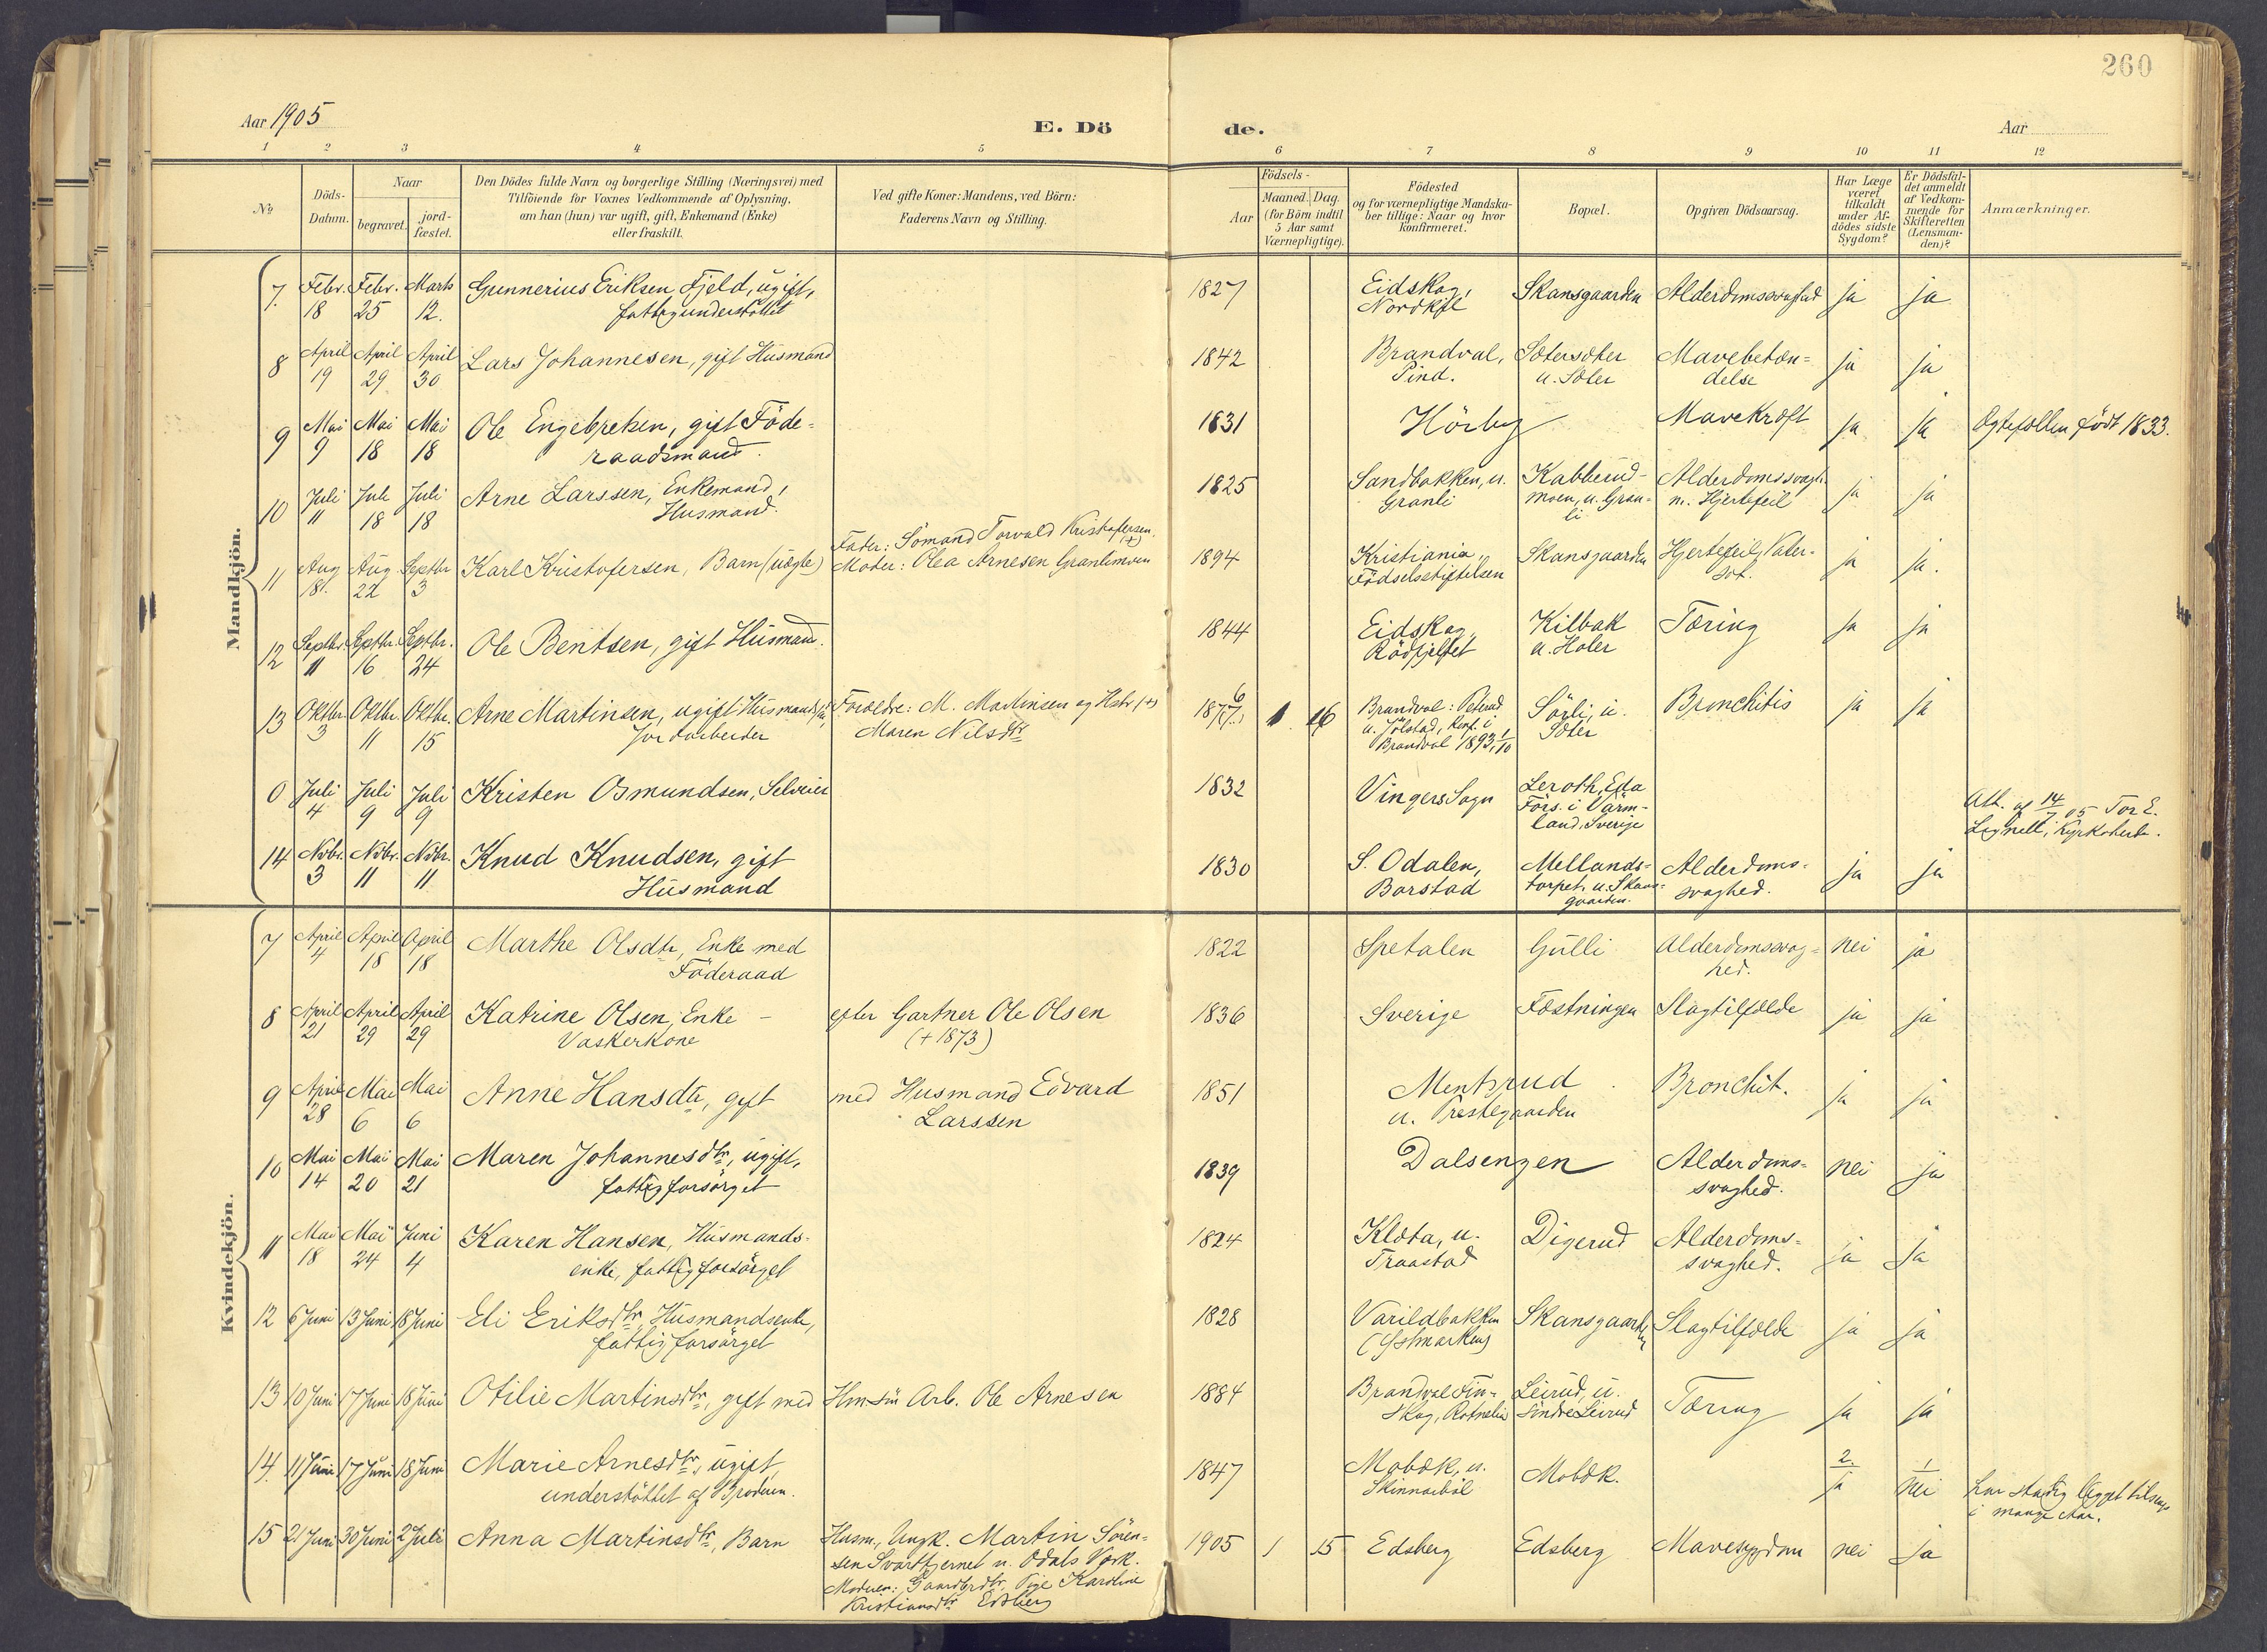 260
Aar 1905
E. Dö
de.
Aar
1 2 3 4 5 6 7 8 9 10 11 12
No.
Döds-
Datum.
Naar
begravet.
jord-
fæstet.
Den Dödes fulde Navn og borgerlige Stilling (Næringsvei) med
Tilföiende for Voxnes Vedkommende af Oplysning.
om han (hun) var ugift, gift, Enkemand (Enke)
eller fraskilt.
Ved gifte Koner: Mandens, ved Börn:
Faderens Navn og Stilling.
Födsels-
Aar
Maaned. Dag.
(for Börn indtil
5 Aar samt
Værnepligtige).
Födested
og for værnepligtige Mandska-
ber tillige: Naar og hvor
konfirmeret.
Bopæl.
Opgiven Dödsaarsag.
Har Læge
været
tilkaldt
under Af-
dödes sidste
Sygdom?
Er Dödsfal-
det anmeldt
af Vedkom-
mende for
Skifteretten
(Lensman-
den)?
Anmærkninger.
Mandkjön.
7. Febr. 18 Febr. 25 Marts 12. Gunnerius Eriksen Fjeld, ugift,
fattigunderstöttet
1827 Eidskog, Skansgaarden Alderdomssvaghed ja ja
8 April 19 April 29 April 30 Lars Johannesen, gift Husmand
1842 Brandval, Pind. Sætersæter u. Sæter Mavebetæn=
delse ja ja
9 Mai 9 Mai 18 Mai 18 Ole Engebretsen, gift Föde=
raadsmand.
1831 Hörby Mavekræft ja ja Ægtefællen födt 1833.
10 Juli 11 Juli 18 Juli 18 Arne Larssen, Enkemand,
Husmand.
1825 Sandbakken, u. Granli Kabberud-
moen, u. Gran-
li Alderdomssvagh.
m. Hjertefeil ja ja
11 Aug 18. Aug 22 Septbr 3 Karl Kristofersen, Barn (uægte)
Fader: Sömand Torvald Kristofersen (+)
Moder: Olea Arnesen Granlimoen
1894 Kristiania, Födselsstiftelsen Skansgaarden Hjertefeil, Vater-
sot. ja ja.
12 Septbr. 11 Septbr. 16 Septbr. 24 Ole Bentsen, gift Husmand.
1844 Eidskog, Rödfjeldet Kilbak u. Holer Tæring ja ja
13 Oktbr. 3 Oktbr. 11 Oktbr. 15 Arne Martinsen, ugift Husmands
Jordarbeider
Forældre: M. Martinsen og Hstr (+)
Maren Nilsdtr
1876 1 16 Brandval:
u. Jölstad, konf. i
Brandval 1893, 1/10 Sörli, u.
Sæter Bronchitis ja ja
0 Juli 4 Juli 9 Juli 9 Kristen Osmundsen, Selveier
1832 Vingers Sogn Leroth, Eda
Förs. i Värm-
land, Sverige
Att. af 14/7 05 Tor E.
Lignell, Kyrkoherde.
14 Nvbr. 3 Nvbr. 11 Nvbr. 11 Knud Knudsen, gift
Husmand
1830 S. Odalen, Borstad Mellands=
torpet, u. Skans-
gaarden. Alderdoms-
svaghed. ja ja
Kvindekjön.
7 April 4 April 18 April 18 Marthe Olsdtr, Enke med
Föderaad
1822 Spetalen Gulli Alderdomssvag=
hed. nei ja
8 April 21 April 29 April 29 Katrine Olsen, Enke -
Vaskerkone
efter Gartner Ole Olsen
(+ 1873)
1836 Sverige Fæstningen Slagtilfælde ja ja
9 April 28 Mai 6 Mai 6 Anne Hansdtr, gift
med Husmand Edvard
Larssen
1851 Mentzrud
u. Prestegaarden Bronchit. ja ja
10 Mai 14 Mai 20 Mai 21 Maren Johannesdtr, ugift,
fattigforsörget
1839 Dalsengen Alderdoms=
svaghed. nei ja
11 Mai 18 Mai 24 Juni 4 Karen Hansen, Husmands-
enke, fattigforsörget
1824 Klæta, u.
Traastad Digerud Alderdoms=
svaghed. ja ja
12 6 Juni 13 Juni 18 Juni Eli Eriksdtr, Husmandsenke,
fattigforsörget
1828 Varildbakken
(Östmarken) Skansgaarden Slagtilfælde ja ja
13 10 Juni 17 Juni 18 Juni Otilie Martinsdtr, gift med Arb. Ole Arnesen
1884 Brandval Fin=
skog, Rotnelia Leirud, u.
söndre Leirud Tæring ja ja
14. 11 Juni 17 Juni 18 Juni Marie Arnesdtr, ugift,
understöttet af Broderen.
1847 Mobæk, u.
Skinnarböl Mobæk. 2. ja 1 nei har stadig ligget tilsengs
i mange Aar.
15 21 Juni 30 Juni 2 Juli Anna Martinsdtr, Barn
Husm., Ungk. Martin Sören=
sen Svarttjernet u. Odals Værk.
Moderen: Gaardbrdtr, Pige Karoline
Kristiansdtr Edsberg
1905 1 15 Edsberg Edsberg Mavesygdom nei ja